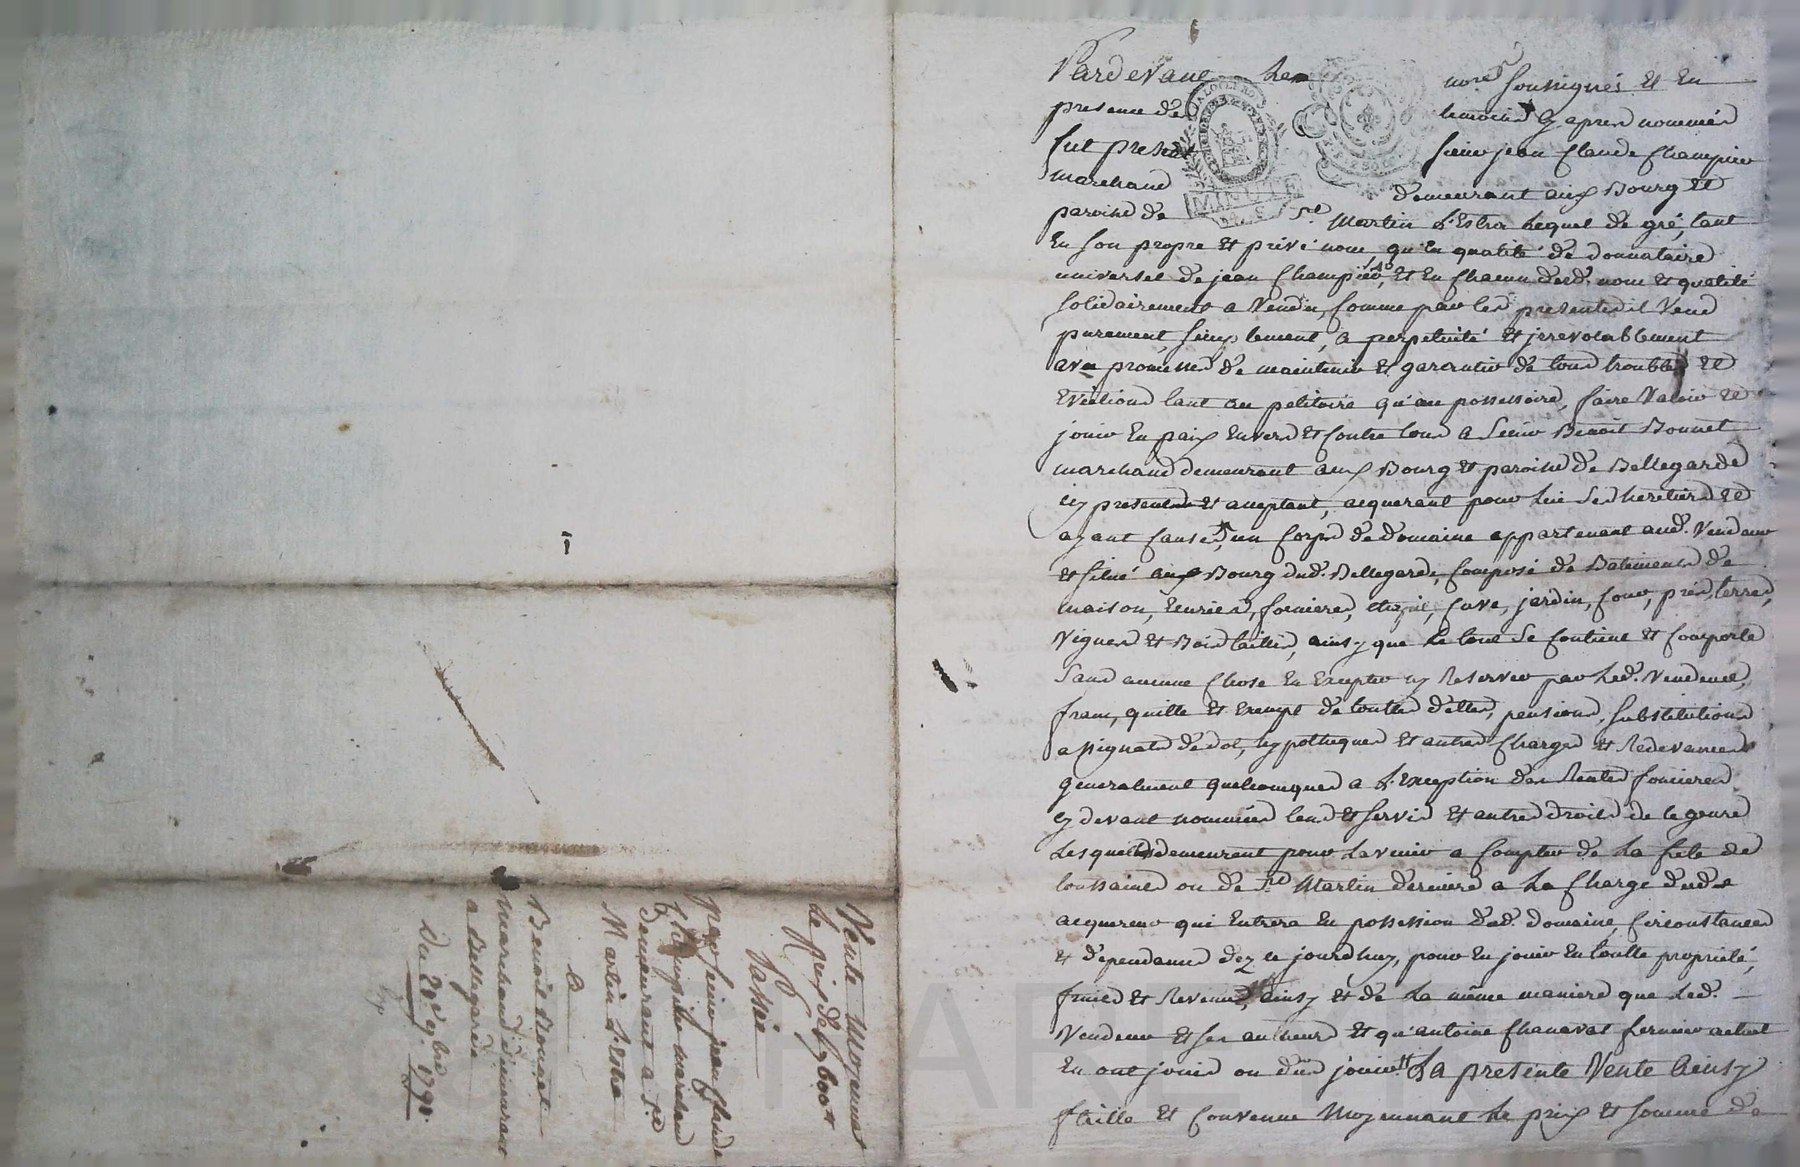 Pardevant Les nores. soussignés Et En
presence des temoins cy apres nommés
fut present sieur jean Claude Champier
marchand demeurant aux Bourg Et
paroisse de St. Martin L'Estra Lequel de gré, tant
En son propre Et privé nom, qu'En qualité de donnataire
universel de jean Champier, Et En chacun desd. nom Et qualité
solidairement a Vendu, Comme par les presentes il Vend
purement, simplement, a perpetuité Et jrrevocablement
avec promesses de maintenir Et garantir de tous troubles Et
Evictions tant au petitoire qu'au possessoire, faire Valoir Et
jouir En paix Envers Et Contre tous a Sieur Benoit Bonnet
marchand demeurant aux Bourg Et paroisse de Bellegarde
icy present Et acceptant, acquerant pour Lui Ses heretiers Et
ayant Cause, un Corps de domaine appartenant aud. Vendeur
Et situé aux Bourg dud. Bellegarde, Composé de Batiments de
maison, Ecuries, Cave, jardin, Cour, prés, terres,
Vignes Et Bois taillis, ainsy que Le tout Se Contient Et Comporte
Sans aucune Chose En Excepter ny Reserver par Led. Vendeur,
franc, quitte Et Exempt de touttes dettes, pensions, substitutions
assignats de dot, hypotheques Et autres Charges Et Redevances
generalement quelconques a L'Exception des Rentes foncieres
cy devant nommées Cens Et servis Et autres droits de ce genre
Lesquels demeurent pour Lavenir a Compter de La fete de
toussaints ou de St Martin derniere a La Charge dud.
acquereur qui Entrera En possession dud. domaine, Circonstances
Et dependances dez ce jourdhuy, pour En jouir En toutte propriété,
fruits Et Revenus, ainsy Et de La même maniere que Led.
Vendeur Et ses autheurs Et qu'antoine Chanavat fermier actuel
En ont jouis ou du jouir. La presente Vente ainsy
faitte Et Convenue Moyennant Le prix Et somme de
Vente moyennant
Le prix de 9600tt
Passée
par sieur jean Claude
Champier marchand
demeurant a St
Martin L'Estra
a
Benoit Bonnet
marchand demeurant
a Bellegarde
Du 20e 9bre 1790.
A LOI LE ROI
MINUTE